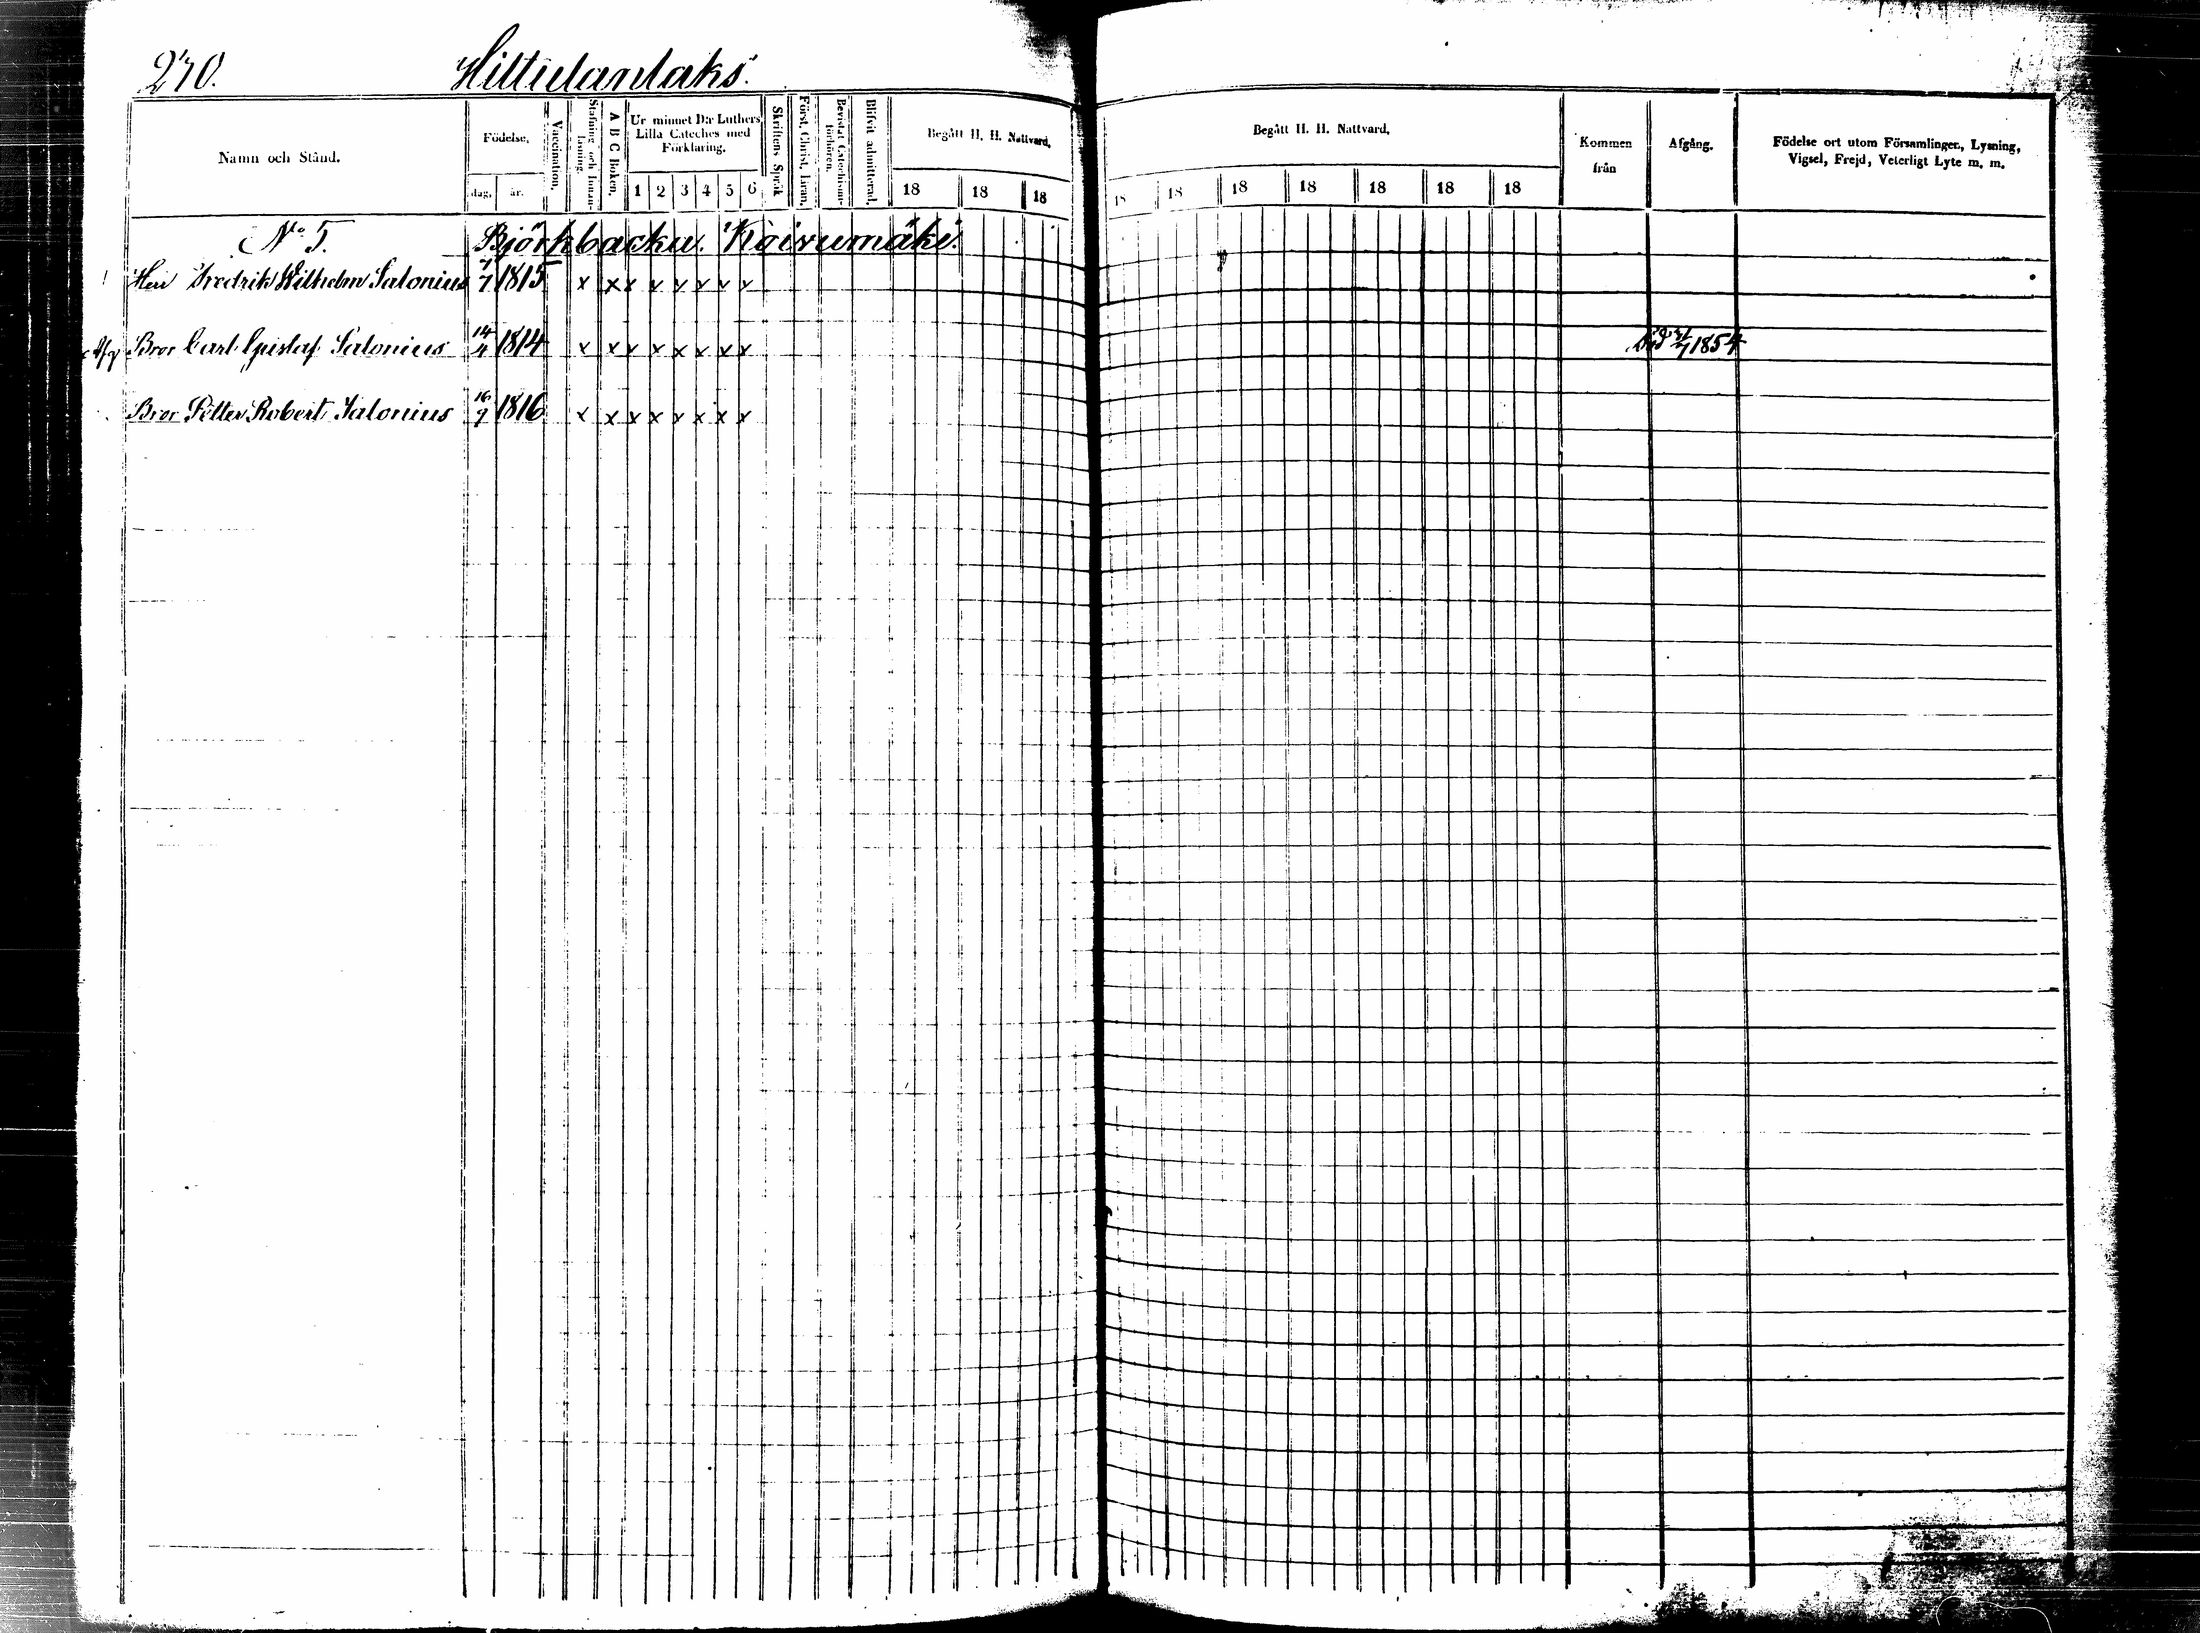 270. Hiltulanlaks.
Namn och Stånd.
Födelse.
dag.
år.
Vaccination.
Stafning och Innanläsning
A B C Boken.
Ur minnet D:r Luthers
Lilla Cateches med
Förklaring.
1 2 3 4 5 6
Skriftens Språk
Först. Christ. Läran.
Bevistat Catechismiförhören.
Blifvit admitterad.
Begått H. H. Nattvard.
18 18 18
Begått H. H. Nattvard.
18 18 18 18 18 18 18
Kommen
från
Afgång.
Födelse ort utom Församlingen, Lysning,
Vigsel, Frejd, Veterligt Lyte m. m.
N:o 5. Björkbacka. Koivumäki.
Herr Fredrik Wilhelm Salonius 7/7 1815 x x x x x x x x
Afg Bror Carl Gustaf Salonius 14/4 1814 x x x x x x x x Död 1854
Bror Petter Robert Salonius 16/9 1816 x x x x x x x x